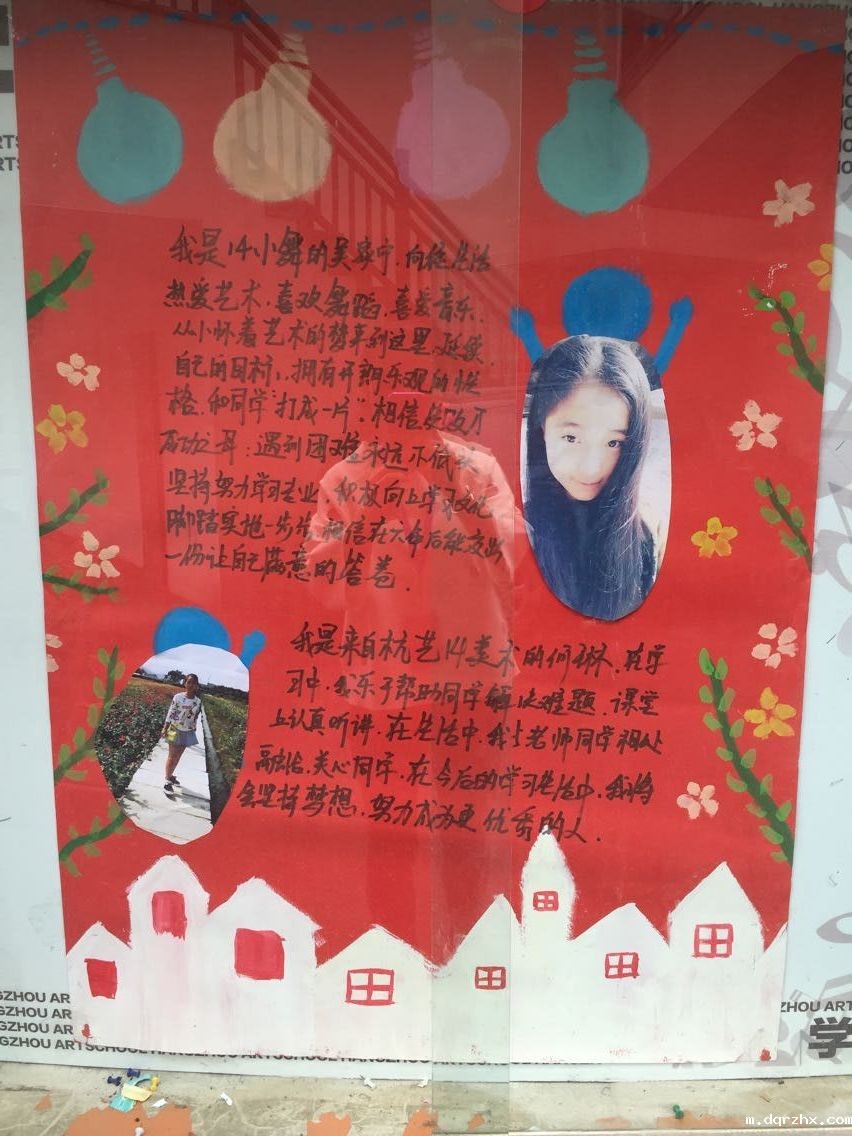 我是14小舞的吴家宁.向往生活
热爱艺术.喜欢舞蹈.喜爱音乐.
从小怀着艺术的梦来到这里.延续
自己的目标.拥有开朗乐观的性
格.和同学"打成一片".相信失败乃
成功之母:遇到困难永远不低头
坚持努力学习专业.积极向上学习文化
脚踏实地一步步.相信在六年后能交出
一份让自己满意的答卷.
我是来自杭艺14美术的何琳.在学
习中.我乐于帮助同学解决难题.课堂
上认真听讲.在生活中.我与老师同学相处
融洽.关心同学.在今后的学习生活中.我将
会坚持梦想.努力成为更优秀的人.
GZHOU AR
GZHOU AR
GZHOU AR
GZHOU ARTSCHOOL HANGZHOU ARTSCHOOL HANGZHOU
ZHOU ART
学
m.dqrzhx.com